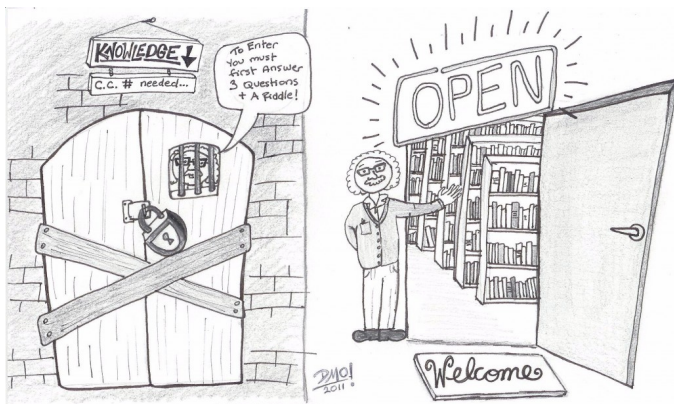 KNOWLEDGE
C.C. # needed...
To Enter
You must
first Answer
3 Questions
+ A Riddle!
OPEN
Welcome
DMO!
2011